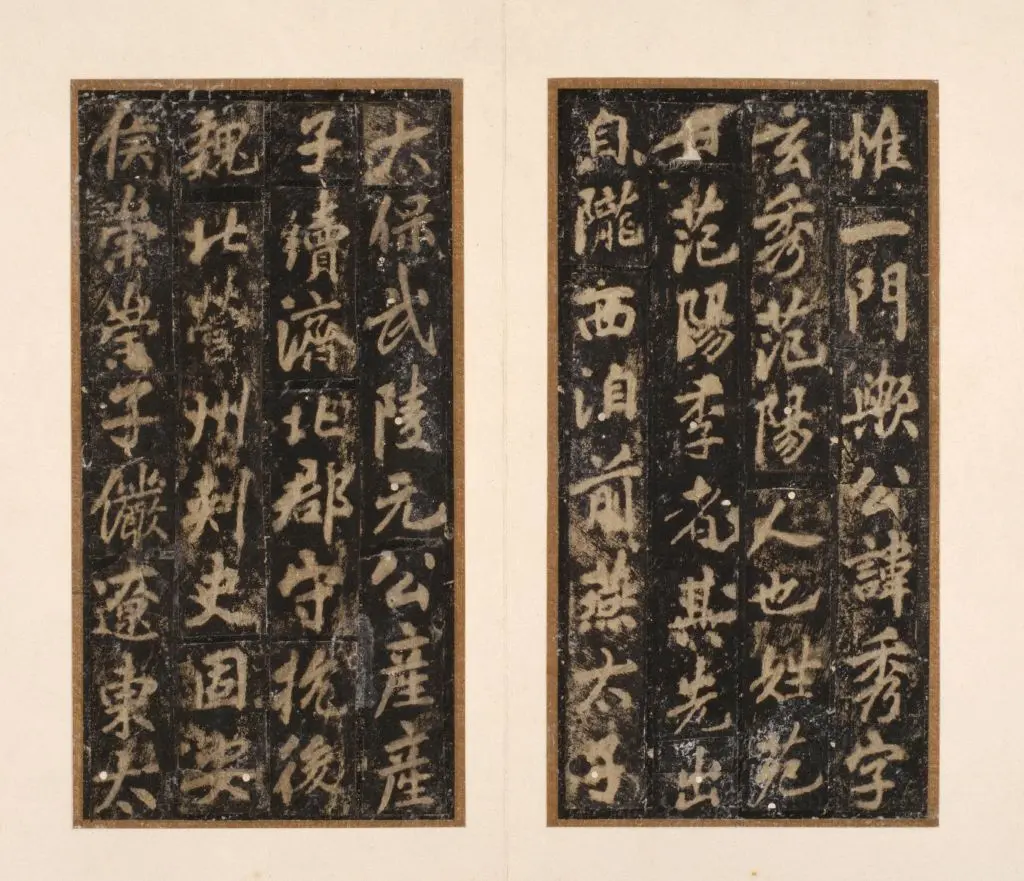 惟一門歟公諱秀字
玄秀范陽人也姓苑
范陽李者其先出
自隴西洎前燕太子
太保武陵元公產產
子續濟北郡守抗後
魏北營州刺史固安
侯崇崇子儼遼東太